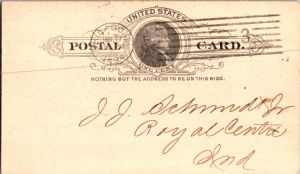 UNITED STATES
POSTAL CARD.
ONE CENT
NOTHING BUT THE ADDRESS TO BE ON THIS SIDE.
J. J. Schmidt Jr
Royal Centre
Ind